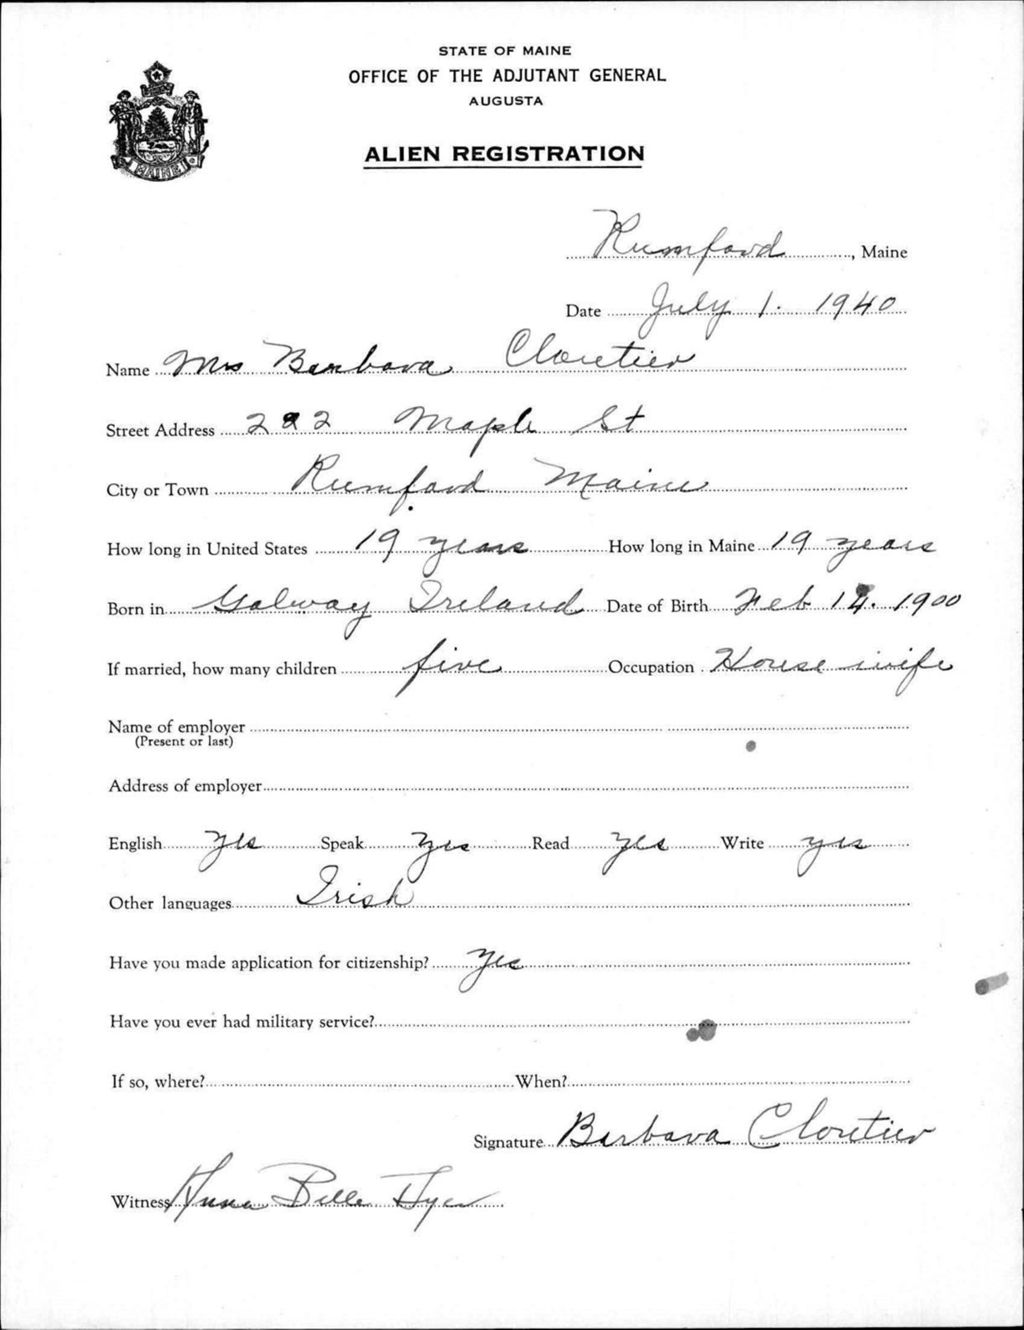 STATE OF MAINE
OFFICE OF THE ADJUTANT GENERAL
AUGUSTA
ALIEN REGISTRATION
MAINE
Rumford, Maine
Date July 1. 1940
Name Mrs Barbara Cloutier
Street Address 222 Maple St
City or Town Rumford Maine
How long in United States 19 years How long in Maine 19 years
Born in Galway Ireland Date of Birth Feb 14. 1900
If married, how many children five Occupation House wife
Name of employer
(Present or last)
Address of employer
English yes Speak yes Read yes Write yes
Other languages Irish
Have you made application for citizenship? Yes
Have you ever had military service?
If so, where? When?
Signature Barbara Cloutier
Witness Anna Belle